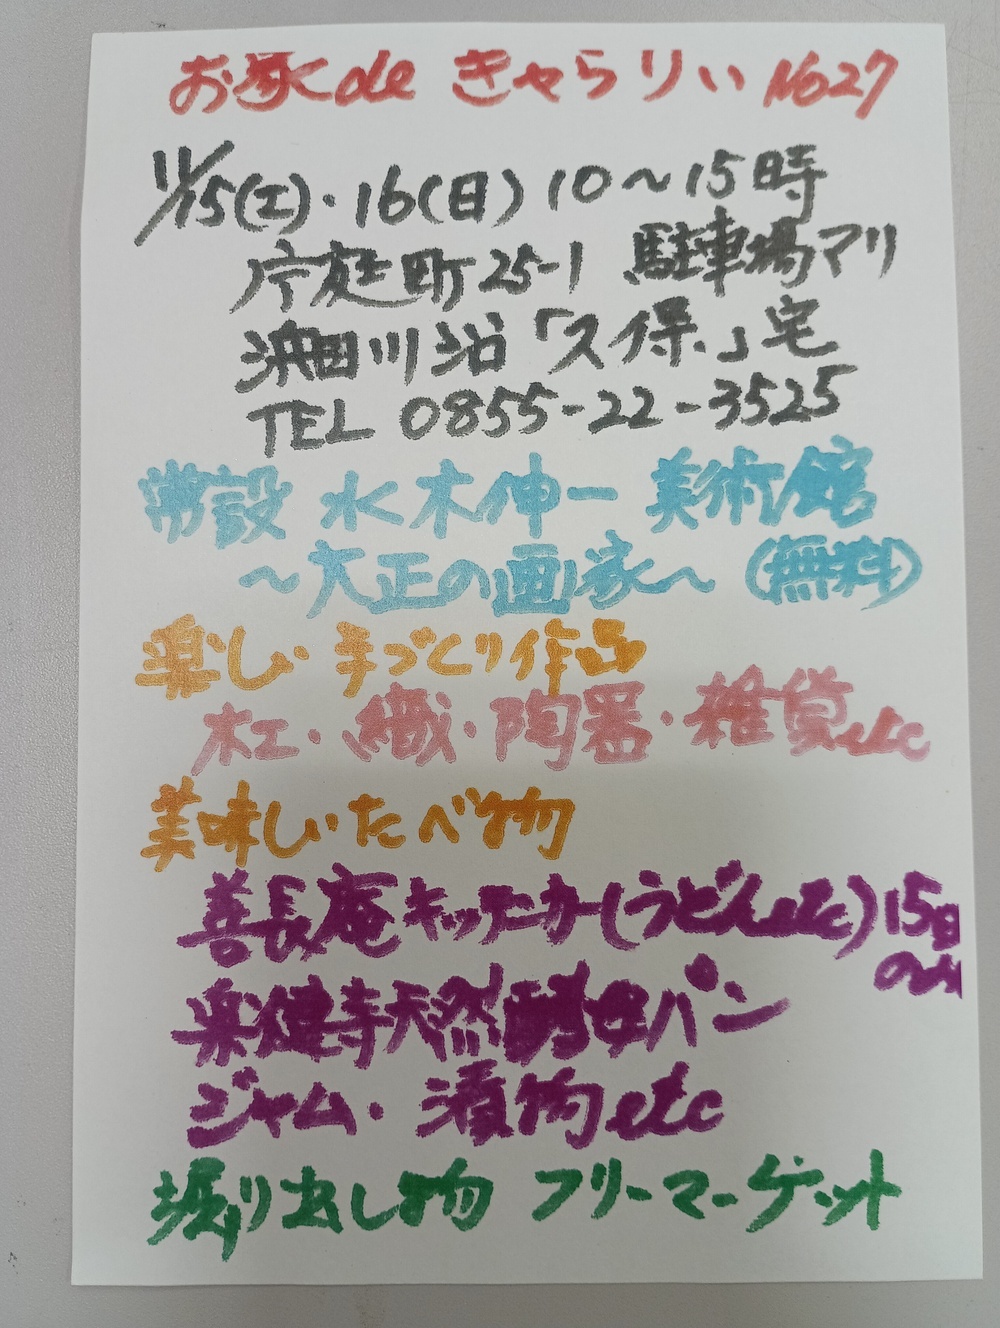 お家de きゃらりぃ No27
11/15(土)・16(日) 10〜15時
庭町25-1 駐車場アリ
浜田川沿「久保」宅
TEL 0855-22-3525
常設 水木伸一 美術館
〜大正の画家〜 (無料)
楽しい 手づくり作品
木工・織・陶器・雑貨etc
美味しいたべ物
善長庵キッチンカー(うどんetc) 15日
のみ
楽健寺天然酵母パン
ジャム・漬物etc
掘り出し物 フリーマーケット